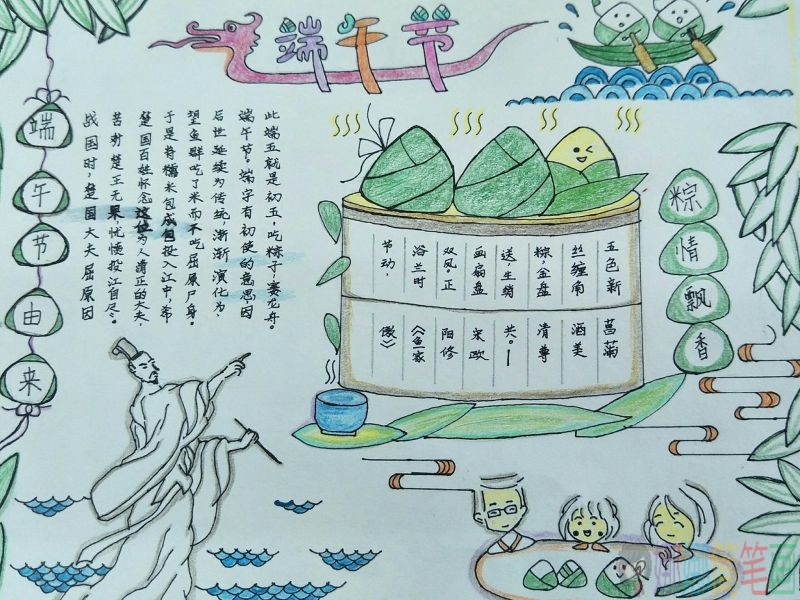 端午节
端午节由来
战国时，楚国大夫屈原因
苦劝楚王无果，忧愤投江自尽。
楚国百姓怀念这位为人清正的大夫，
于是将糯米包成团投入江中，希
望鱼群吃了米而不吃屈原尸身。
后世延续为传统渐渐演化为
端午节。端字有初使的意思，因
此端五就是初五，吃粽子，赛龙舟。
五色新
丝缠角
粽，金盘
送，生绡
画扇盘
双凤。正
浴兰时
节动，
菖蒲
酒美
清尊
共。—
宋欧
阳修
《鱼家
傲》
粽情飘香